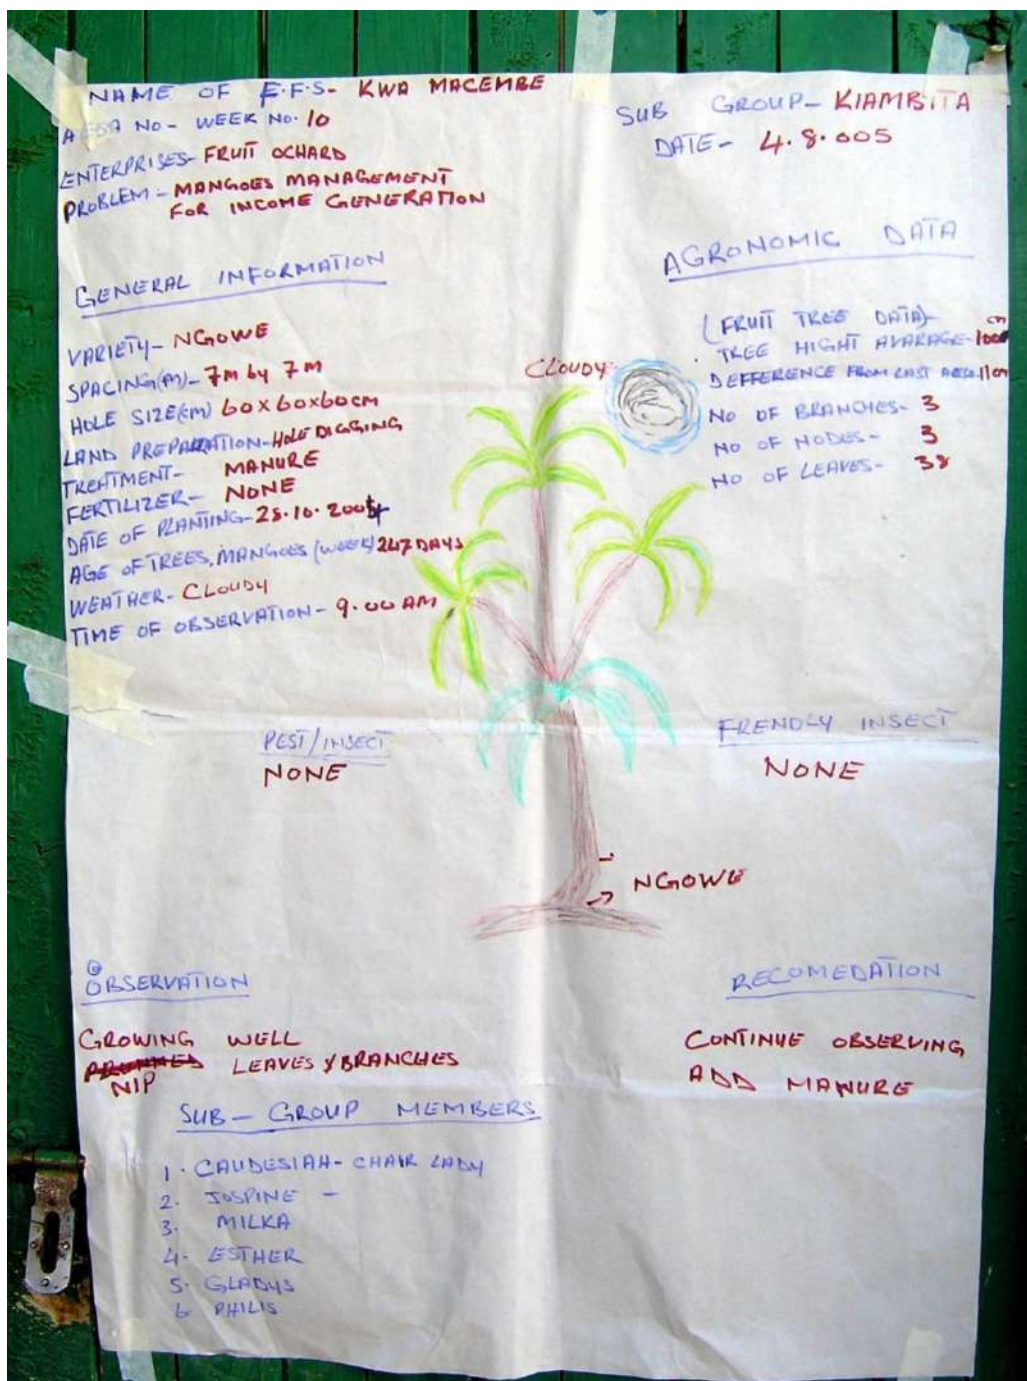 NAME OF F.F.S- KWA MACEMBE
AESA NO- WEEK NO. 10
ENTERPRISES- FRUIT OCHARD
PROBLEM- MANGOES MANAGEMENT
FOR INCOME GENERATION
SUB GROUP- KIAMBITA
DATE- 4.8.005
GENERAL INFORMATION
VARIETY- NGOWE
SPACING(M)- 7M by 7M
HOLE SIZE(CM) 60x60x60CM
LAND PREPARATION- HOLE DIGGING
TREATMENT- MANURE
FERTILIZER- NONE
DATE OF PLANTING- 28.10.2004
AGE OF TREES, MANGOES (WEEK) 247 DAYS
WEATHER- CLOUDY
TIME OF OBSERVATION- 9.00 AM
AGRONOMIC DATA
(FRUIT TREE DATA)-
TREE HIGHT AVARAGE- cm
DEFFERENCE FROM LAST AESA- 11cm
NO OF BRANCHES- 3
NO OF NODES- 3
NO OF LEAVES- 38
CLOUDY-
PEST/INSECT
NONE
FRENDLY INSECT
NONE
NGOWE
OBSERVATION
GROWING WELL
NIP LEAVES & BRANCHES
RECOMEDATION
CONTINUE OBSERVING
ADD MANURE
SUB- GROUP MEMBERS
1. CAUDESIAH- CHAIR LADY
2. JOSPINE -
3. MILKA
4. ESTHER
5. GLADYS
6. PHILIS